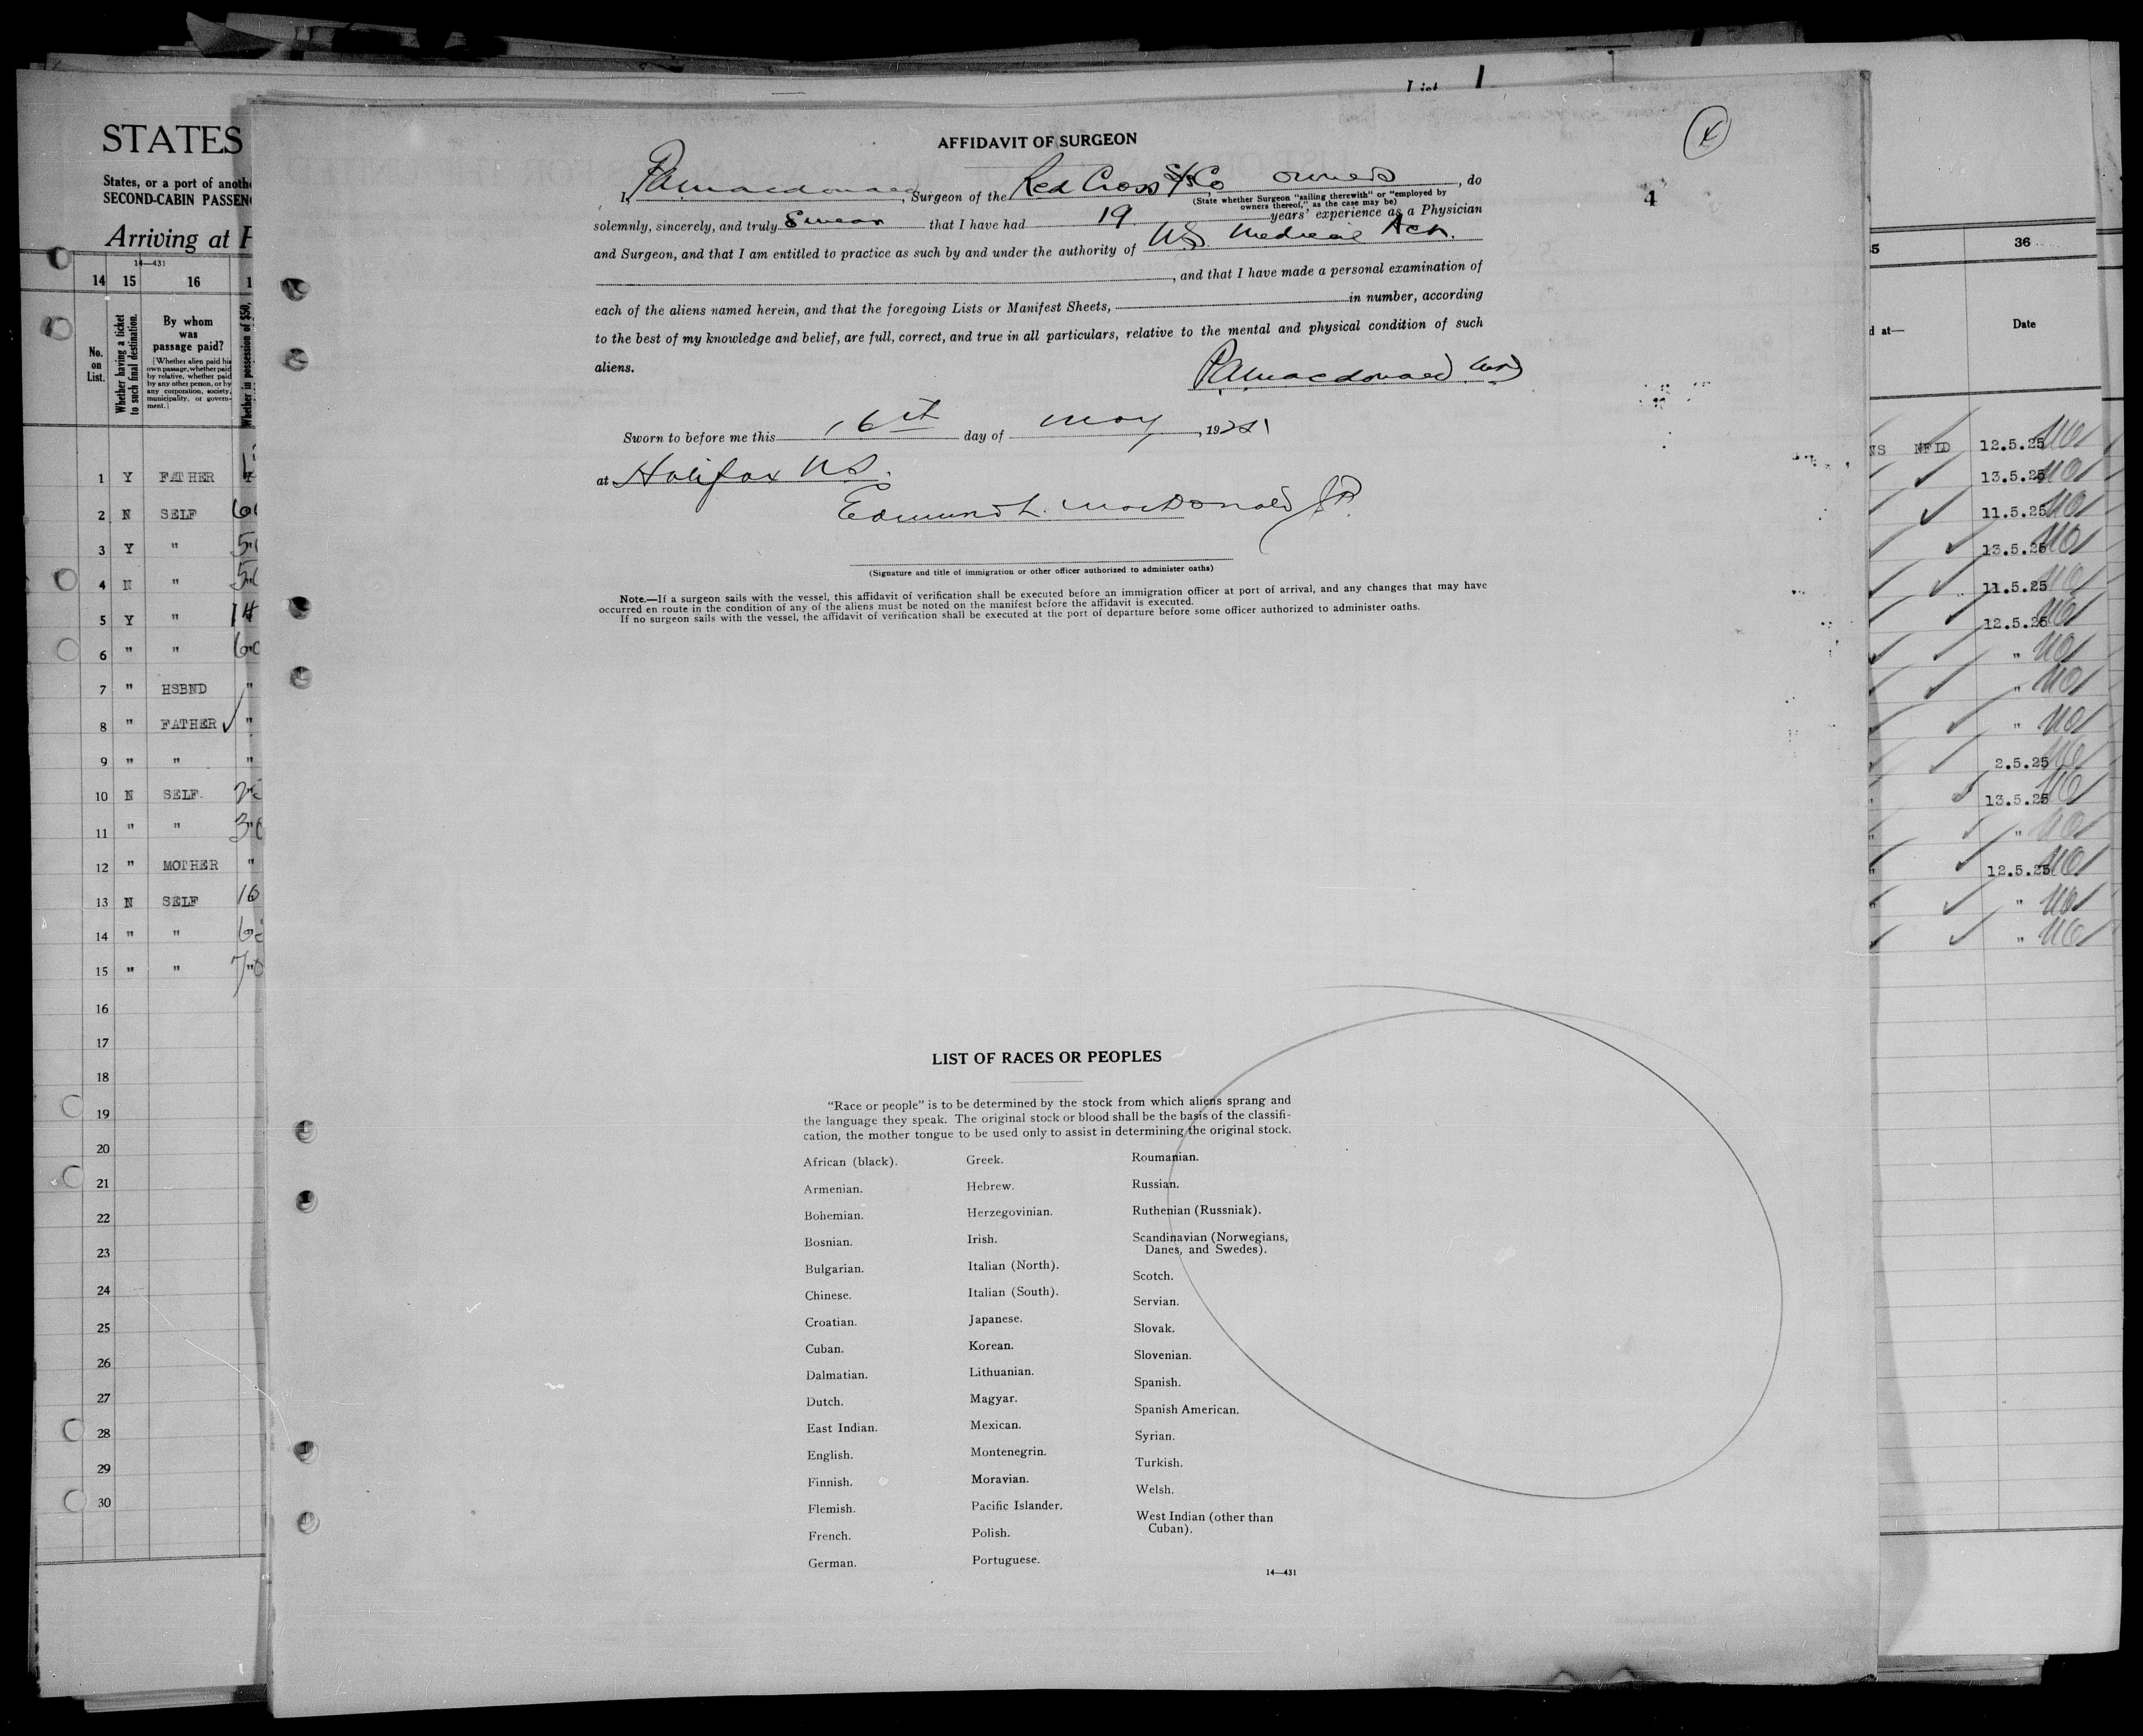 List 1
STATES
States, or a port of anoth
SECOND-CABIN PASSEN
Arriving at
14—431
14 15 16 1
No. on List.
Whether having a ticket to such final destination.
By whom was passage paid?
[Whether alien paid his own passage, whether paid by relative, whether paid by any other person, or by any corporation, society, municipality, or government.]
Whether in possession of $50,
1 Y FATHER
2 N SELF
3 Y "
4 N "
5 Y "
6 " "
7 " HSBND "
8 " FATHER "
9 " " "
10 N SELF
11 " "
12 " MOTHER "
13 N SELF
14 " "
15 " "
16
17
18
19
20
21
22
23
24
25
26
27
28
29
30
AFFIDAVIT OF SURGEON
4
I, PAMacdonald, Surgeon of the Red Cross S/S Co owners, do
(State whether Surgeon "sailing therewith" or "employed by
owners thereof," as the case may be)
solemnly, sincerely, and truly Swear that I have had 19 years' experience as a Physician
and Surgeon, and that I am entitled to practice as such by and under the authority of N.S. Medical Act.
, and that I have made a personal examination of
each of the aliens named herein, and that the foregoing Lists or Manifest Sheets, in number, according
to the best of my knowledge and belief, are full, correct, and true in all particulars, relative to the mental and physical condition of such
aliens.
PAMacdonald MD
Sworn to before me this 16th day of May, 192
at Halifax N.S.
Edmund L. MacDonald J.P.
(Signature and title of immigration or other officer authorized to administer oaths)
Note.—If a surgeon sails with the vessel, this affidavit of verification shall be executed before an immigration officer at port of arrival, and any changes that may have
occurred en route in the condition of any of the aliens must be noted on the manifest before the affidavit is executed.
If no surgeon sails with the vessel, the affidavit of verification shall be executed at the port of departure before some officer authorized to administer oaths.
LIST OF RACES OR PEOPLES
"Race or people" is to be determined by the stock from which aliens sprang and
the language they speak. The original stock or blood shall be the basis of the classifi-
cation, the mother tongue to be used only to assist in determining the original stock.
African (black).
Armenian.
Bohemian.
Bosnian.
Bulgarian.
Chinese.
Croatian.
Cuban.
Dalmatian.
Dutch.
East Indian.
English.
Finnish.
Flemish.
French.
German.
Greek.
Hebrew.
Herzegovinian.
Irish.
Italian (North).
Italian (South).
Japanese.
Korean.
Lithuanian.
Magyar.
Mexican.
Montenegrin.
Moravian.
Pacific Islander.
Polish.
Portuguese.
Roumanian.
Russian.
Ruthenian (Russniak).
Scandinavian (Norwegians,
Danes, and Swedes).
Scotch.
Servian.
Slovak.
Slovenian.
Spanish.
Spanish American.
Syrian.
Turkish.
Welsh.
West Indian (other than
Cuban).
14—431
5 36
d at— Date
NS NFLD 12.5.25
13.5.25
11.5.25
13.5.25
11.5.25
12.5.25
"
"
"
2.5.25
13.5.25
"
12.5.25
"
"